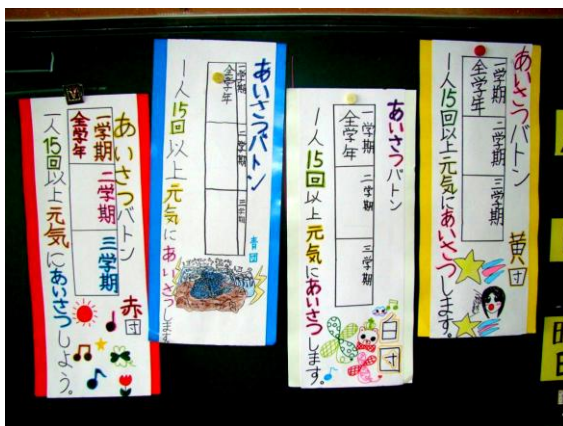 あいさつバトン
一学期 二学期 三学期
全学年
黄団
一人15回以上元気にあいさつします。
あいさつバトン
一学期 二学期 三学期
全学年
白団
1人15回以上元気にあいさつします。
あいさつバトン
一学期 二学期 三学期
全学年
青団
1人15回以上元気にあいさつします
あいさつバトン
一学期 二学期 三学期
全学年
赤団
一人15回以上元気にあいさつしよう。